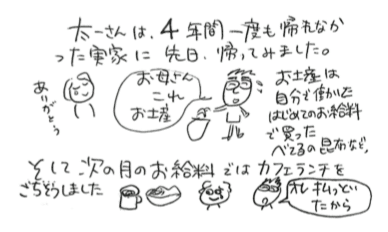 太一さんは、4年間一度も帰れなか
った実家に先日、帰ってみました。
ありがとう
お母さん
これ
お土産
お土産は
自分で働いた
はじめてのお給料
で買った
べてるの昆布など。
そして次の月のお給料ではカフェランチを
ごちそうしました
オレ払っとい
たから